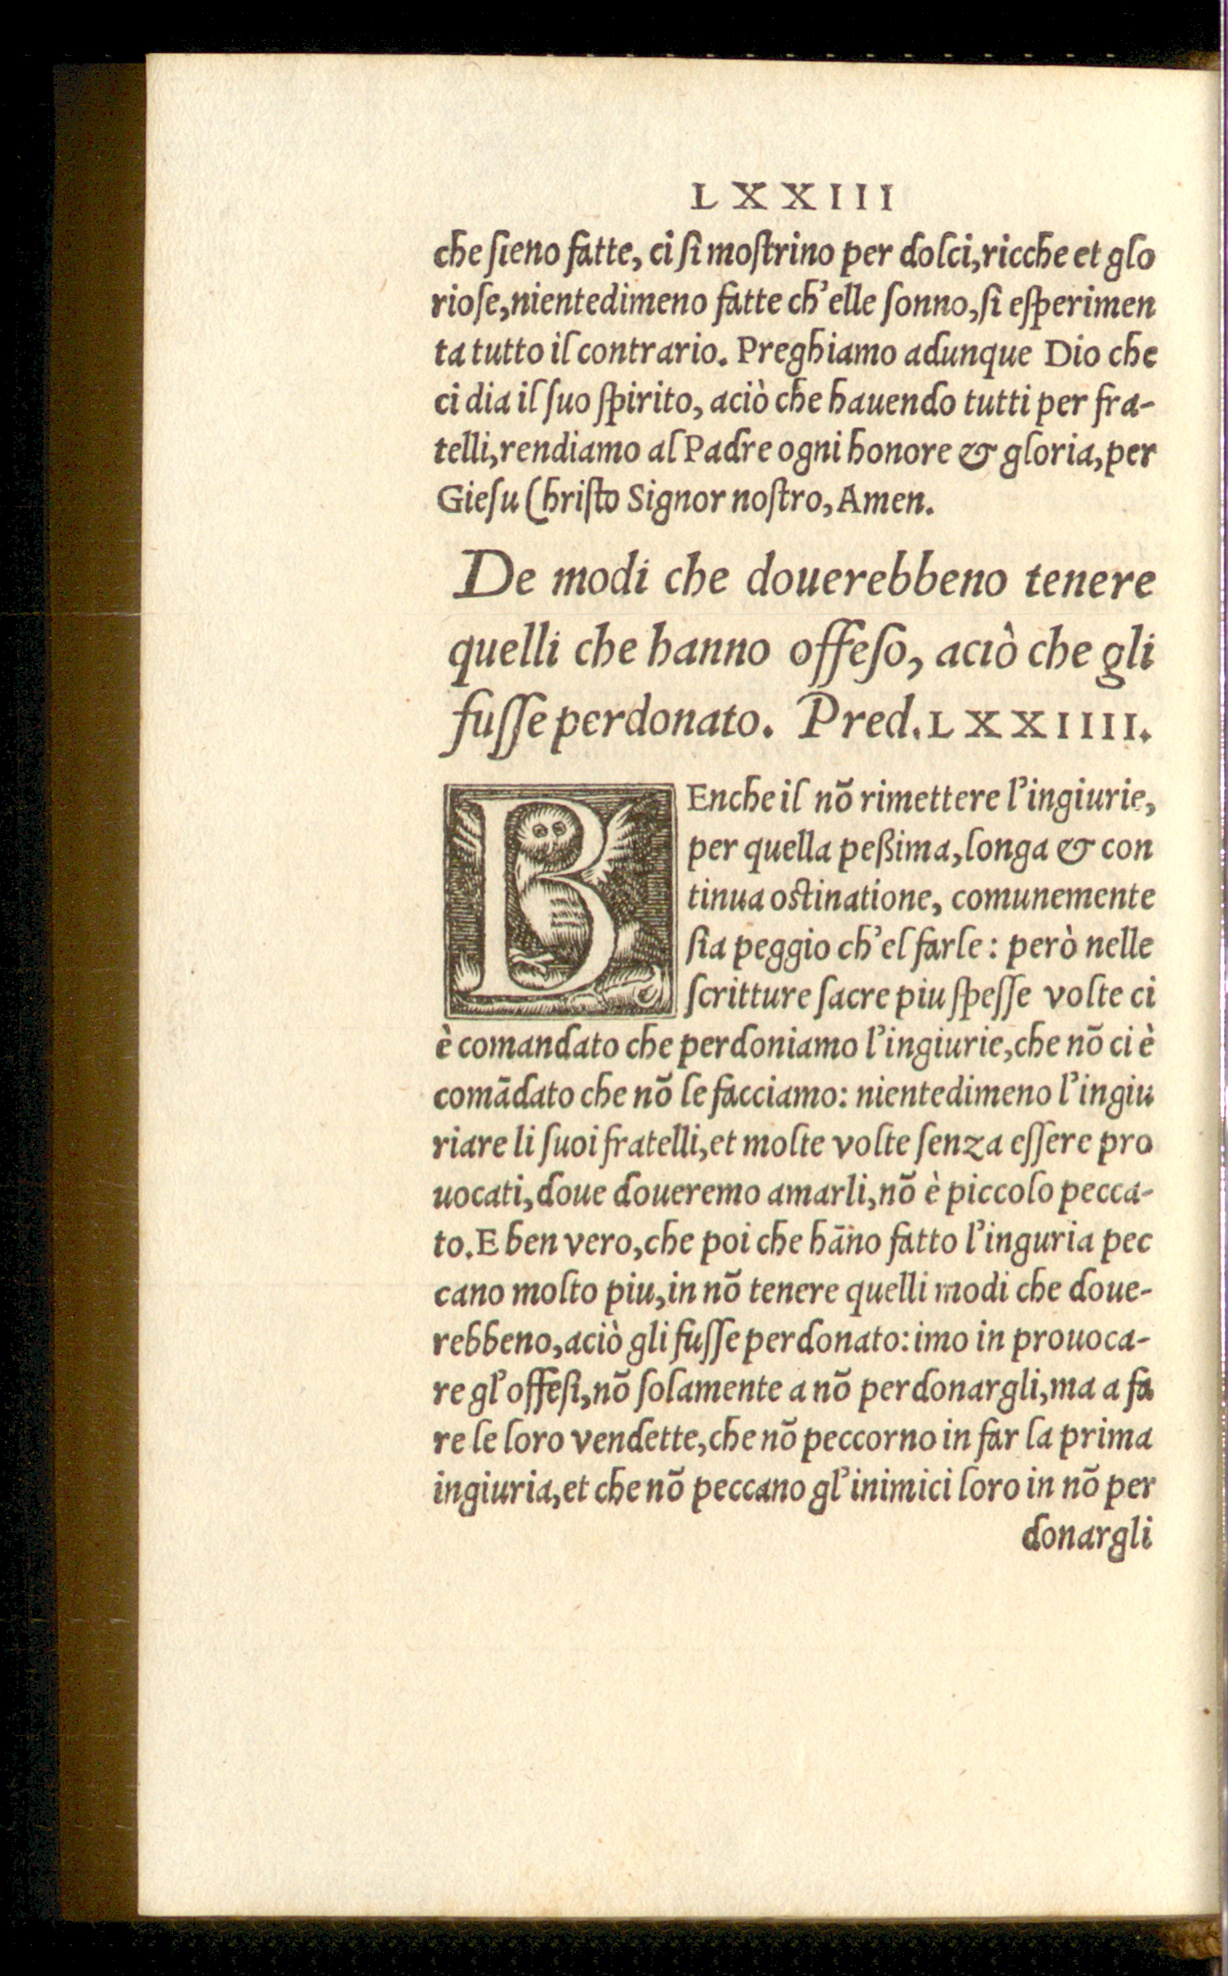 LXXIII
che ſieno fatte, ci ſi moſtrino per dolci, ricche et glo
rioſe, nientedimeno fatte ch'elle ſonno, ſi eſperimen
ta tutto il contrario. Preghiamo adunque Dio che
ci dia il ſuo ſpirito, aciò che hauendo tutti per fra-
telli, rendiamo al Padre ogni honore & gloria, per
Gieſu Chriſto Signor noſtro, Amen.
De modi che douerebbeno tenere
quelli che hanno offeſo, aciò che gli
fuſſe perdonato. Pred. LXXIIII.
BEnche il nō rimettere l'ingiurie,
per quella peßima, longa & con
tinua oſtinatione, comunemente
ſia peggio ch'el farle: però nelle
ſcritture ſacre piu ſpeſſe volte ci
è comandato che perdoniamo l'ingiurie, che nō ci è
comādato che nō le facciamo: nientedimeno l'ingiu
riare li ſuoi fratelli, et molte volte ſenza eſſere pro
uocati, doue doueremo amarli, nō è piccolo pecca-
to. E ben vero, che poi che hāno fatto l'inguria pec
cano molto piu, in nō tenere quelli modi che doue-
rebbeno, aciò gli fuſſe perdonato: imo in prouoca-
re gl'offeſi, nō ſolamente a nō perdonargli, ma a fa
re le loro vendette, che nō peccorno in far la prima
ingiuria, et che nō peccano gl'inimici loro in nō per
donargli